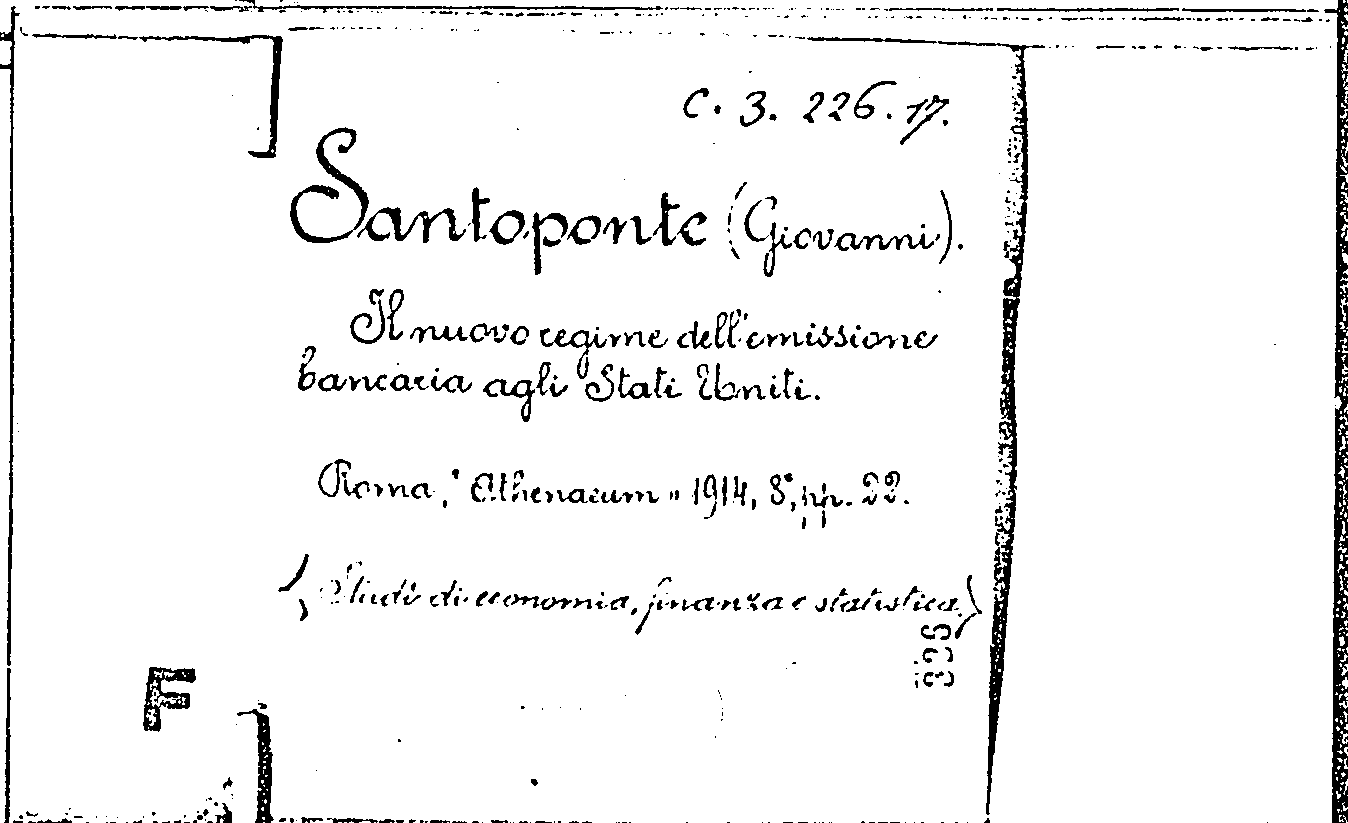 C. 3. 226. 17.
Santoponte (Giovanni).
Il nuovo regime dell'emissione
bancaria agli Stati Uniti.
Roma, "Athenaeum" 1914, 8°, pp. 22.
(Studi di economia, finanza e statistica)
F